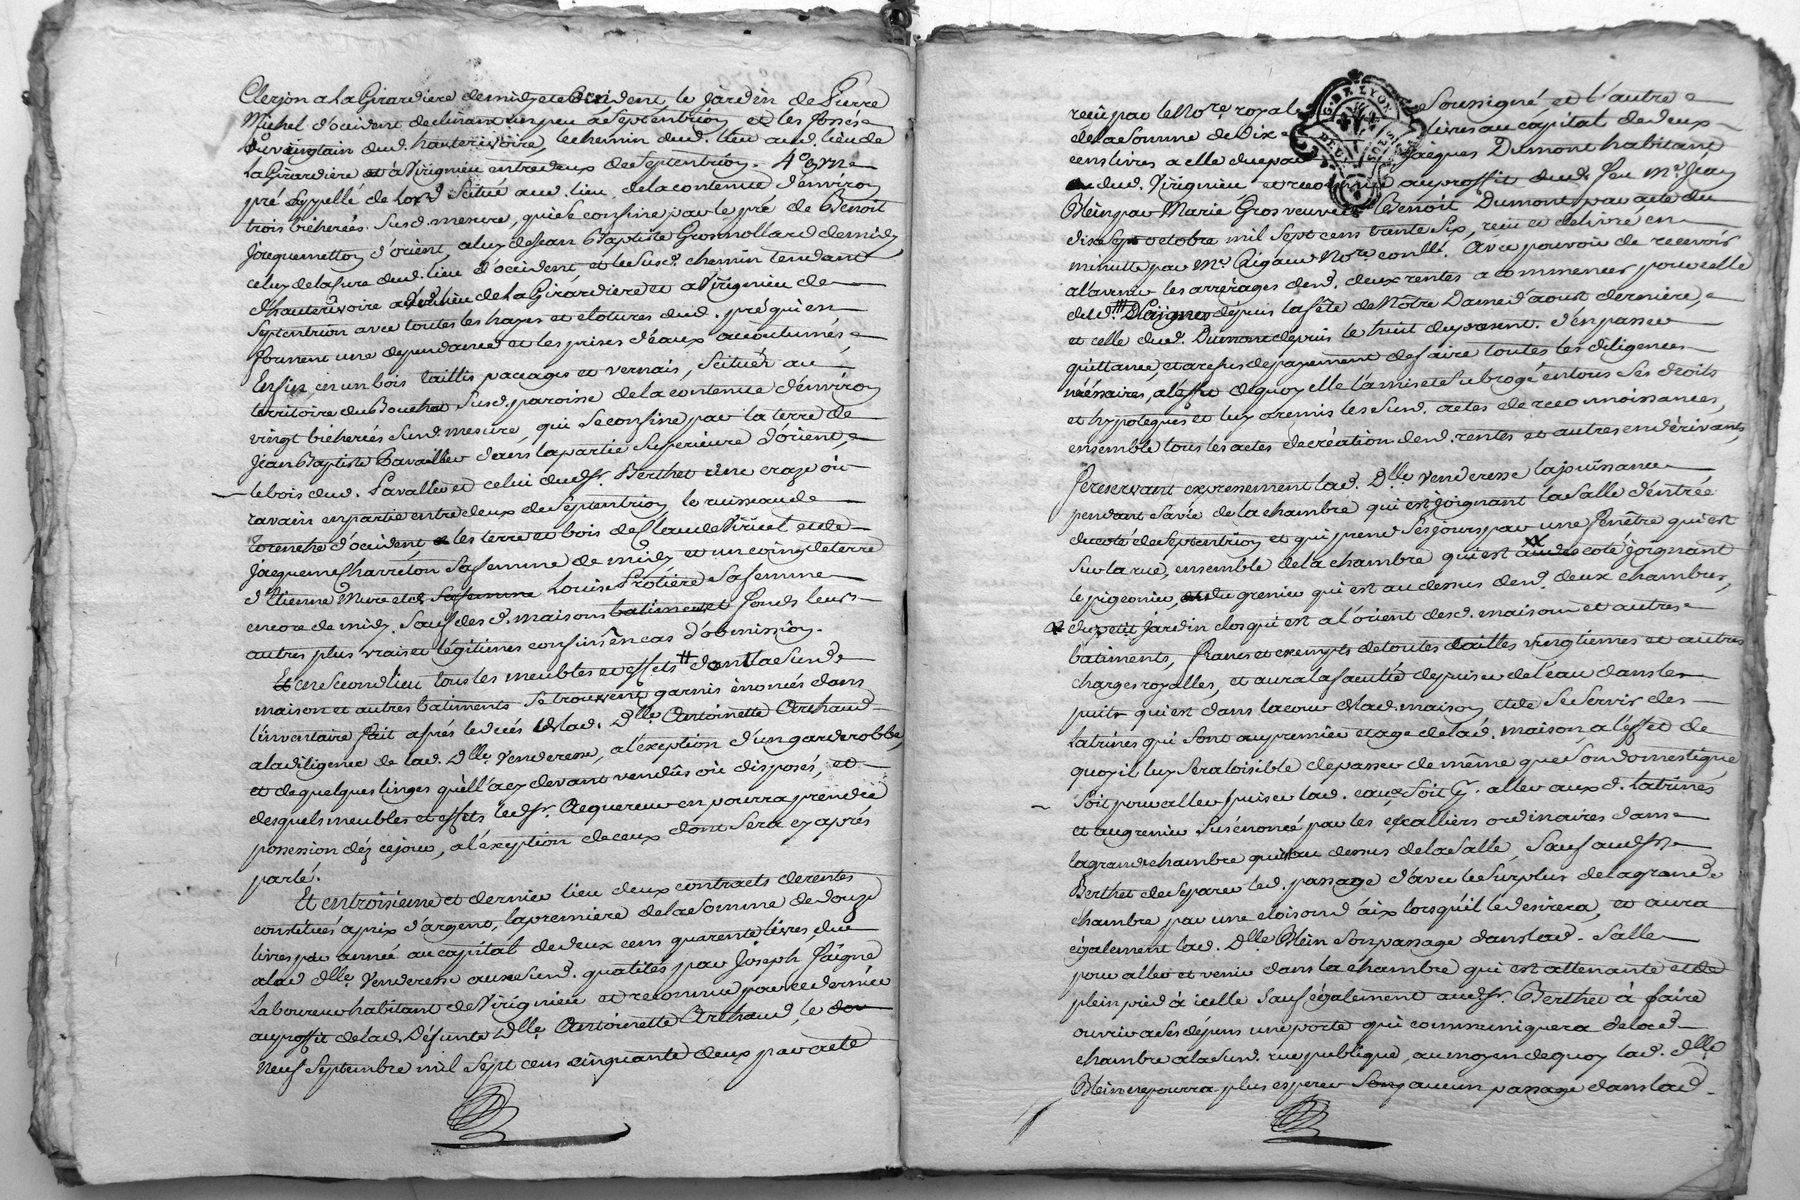 Clerjon a La Girardiere de midy et occident, le jardin de Pierre
Michel d'occident declinant un peu a Septentrion et les fossés
du vingtain dud. hauterivoire, le chemin dud. lieu aud. lieu de
La Girardiere et a Virignieu entredeux de Septentrion. 4.° un
pré appellé de Scitué aud. lieu de la contenue d'environ
trois bicherées susd. mesure, qui se confine par le pré de Benoit
Jacquemetton d'orient, a luy de Jean Baptiste Grosmollard de midy
celuy de la sure dud. lieu d'occident, et le susd. chemin tendant
d'hauterivoire aud. lieu de La Girardiere et a Virignieu de
Septentrion avec toutes les hayes et clotures dud. pré qui en
forment une dependance et les prises d'eaux accoutumés
Enfin, en un bois taillis pacages et vernais, Scitués au
territoire du Bouchet susd. paroisse de la contenue d'environ
vingt bicherées susd. mesure, qui se confine par la terre de
Jean Baptiste Pavallier dans la partie superieure d'orient
le bois dud. Pavallier et celui dud. Sr. Berthet une craze ou
ravain en partie entre deux de Septentrion le ruisseau de
d'occident les terre et bois de Claude Viricel et de
Jacqueme Charreton sa femme de midy et un coing de terre
d'Etienne Mure et de sa femme Louise Protiere sa femme
encore de midy. Sauf desd. maisons batiments et fonds leurs
autres plus vrais et légitimes confins en cas d'obmission.
Et en second lieu tous les meubles et effets # dont la susd.
maison et autres batiments se trouvent garnis énoncés dans
l'inventaire fait aprés le decés de lad. Dlle. Antoinette Arthaud
a la diligence de lad. Dlle. Venderesse, a l'exeption d'un garderobbe,
et de quelques linges qu'ell'a cy devant vendûs où disposés, et
desquels meubles et effets led. Sr. Acquereur en pourra prendre
possession déz ce jour, a l'éxeption de ceux dont sera cy aprés
parlé.
Et en troisieme et dernier lieu deux contracts de rentes
constituées a prix d'argent, la premiere de la somme de douze
livres par année au capital de deux cens quarente livres, due
a lad. Dlle. Venderesse aux susd. qualités par Joseph Paigne
Laboureur habitant de Virignieu et reconnue par ce dernier
au proffit de lad. Défunte Dlle. Antoinette Arthaud, le dou
neuf Septembre mil Sept cens cinquante deux par acte
reçû par le No.re royal Soussigné et l'autre
de la somme de Dix livres au capital de deux
cens livres a elle due par Jacques Dumont habitant
dud. Virignieu et reconnue au proffit dud. feu M.e Jean
Blein par Marie Gros veuve de Benoit Dumont par acte du
dix Sept octobre mil Sept cens trente Six, reçu et delivré en
minutte par M.e Rigaud No.re Avec pouvoir de recevoir
a l'avenir les arrerages desd. deux rentes a commencer pour celle
dud. # Paigne depuis la fête de Nôtre Dame d'aoust derniere,
et celle dud. Dumont depuis le huit du présent. d'en passer
quittance, et a refus de payement de faire toutes les diligences
nécéssaires, a l'effet de quoy elle l'a mis et Subrogé en tous ses droits
et hypoteques et luy a remis les susd. actes de reconnoissances,
ensemble tous les actes de création desd. rentes et autres en dérivants,
se reservant expressement lad. Dlle. Venderesse la jouissance
pendant sa vie de la chambre qui est joignant la salle d'entrée
du coté de Septentrion et qui prend ses jours par une fenêtre qui est
sur la rue, ensemble de la chambre qui est coté joignant
le pigeonier, du grenier qui est au dessus desd. deux chambres,
du petit jardin clos qui est a l'orient desd. maison et autres
batiments, francs et exempts de toutes tailles vingtiemes et autres
charges royalles, et aura la faculté de puiser de l'eau dans les
puits qui est dans la cour de lad. maison et de se servir des
Latrines qui sont au premier etage de lad. maison, a l'éffet de
quoy il luy sera loisible de passer de même que son domestique,
soit pour aller puiser lad. eau, soit p.r aller aux d. latrines
et au grenier susénoncé par les escalliers ordinaires dans
la grande chambre qui est au dessus de la Salle, Sauf aud. Sr.
Berthet de separer led. passage d'avec le surplus de la grande
chambre par une cloison d'aix lorsqu'il le desirera, et aura
également lad. Dlle. Blein son passage dans lad. Salle
pour aller et venir dans la chambre qui est attenante et de
plein pied à icelle sauf également aud. Sr. Berthet à faire
ouvrir a ses dépens une porte qui communiquera de lad.
chambre a la susd. rue publique, au moyen de quoy lad. Dlle.
Blein ne pourra plus esperer aucun passage dans lad.
G. DE LYON